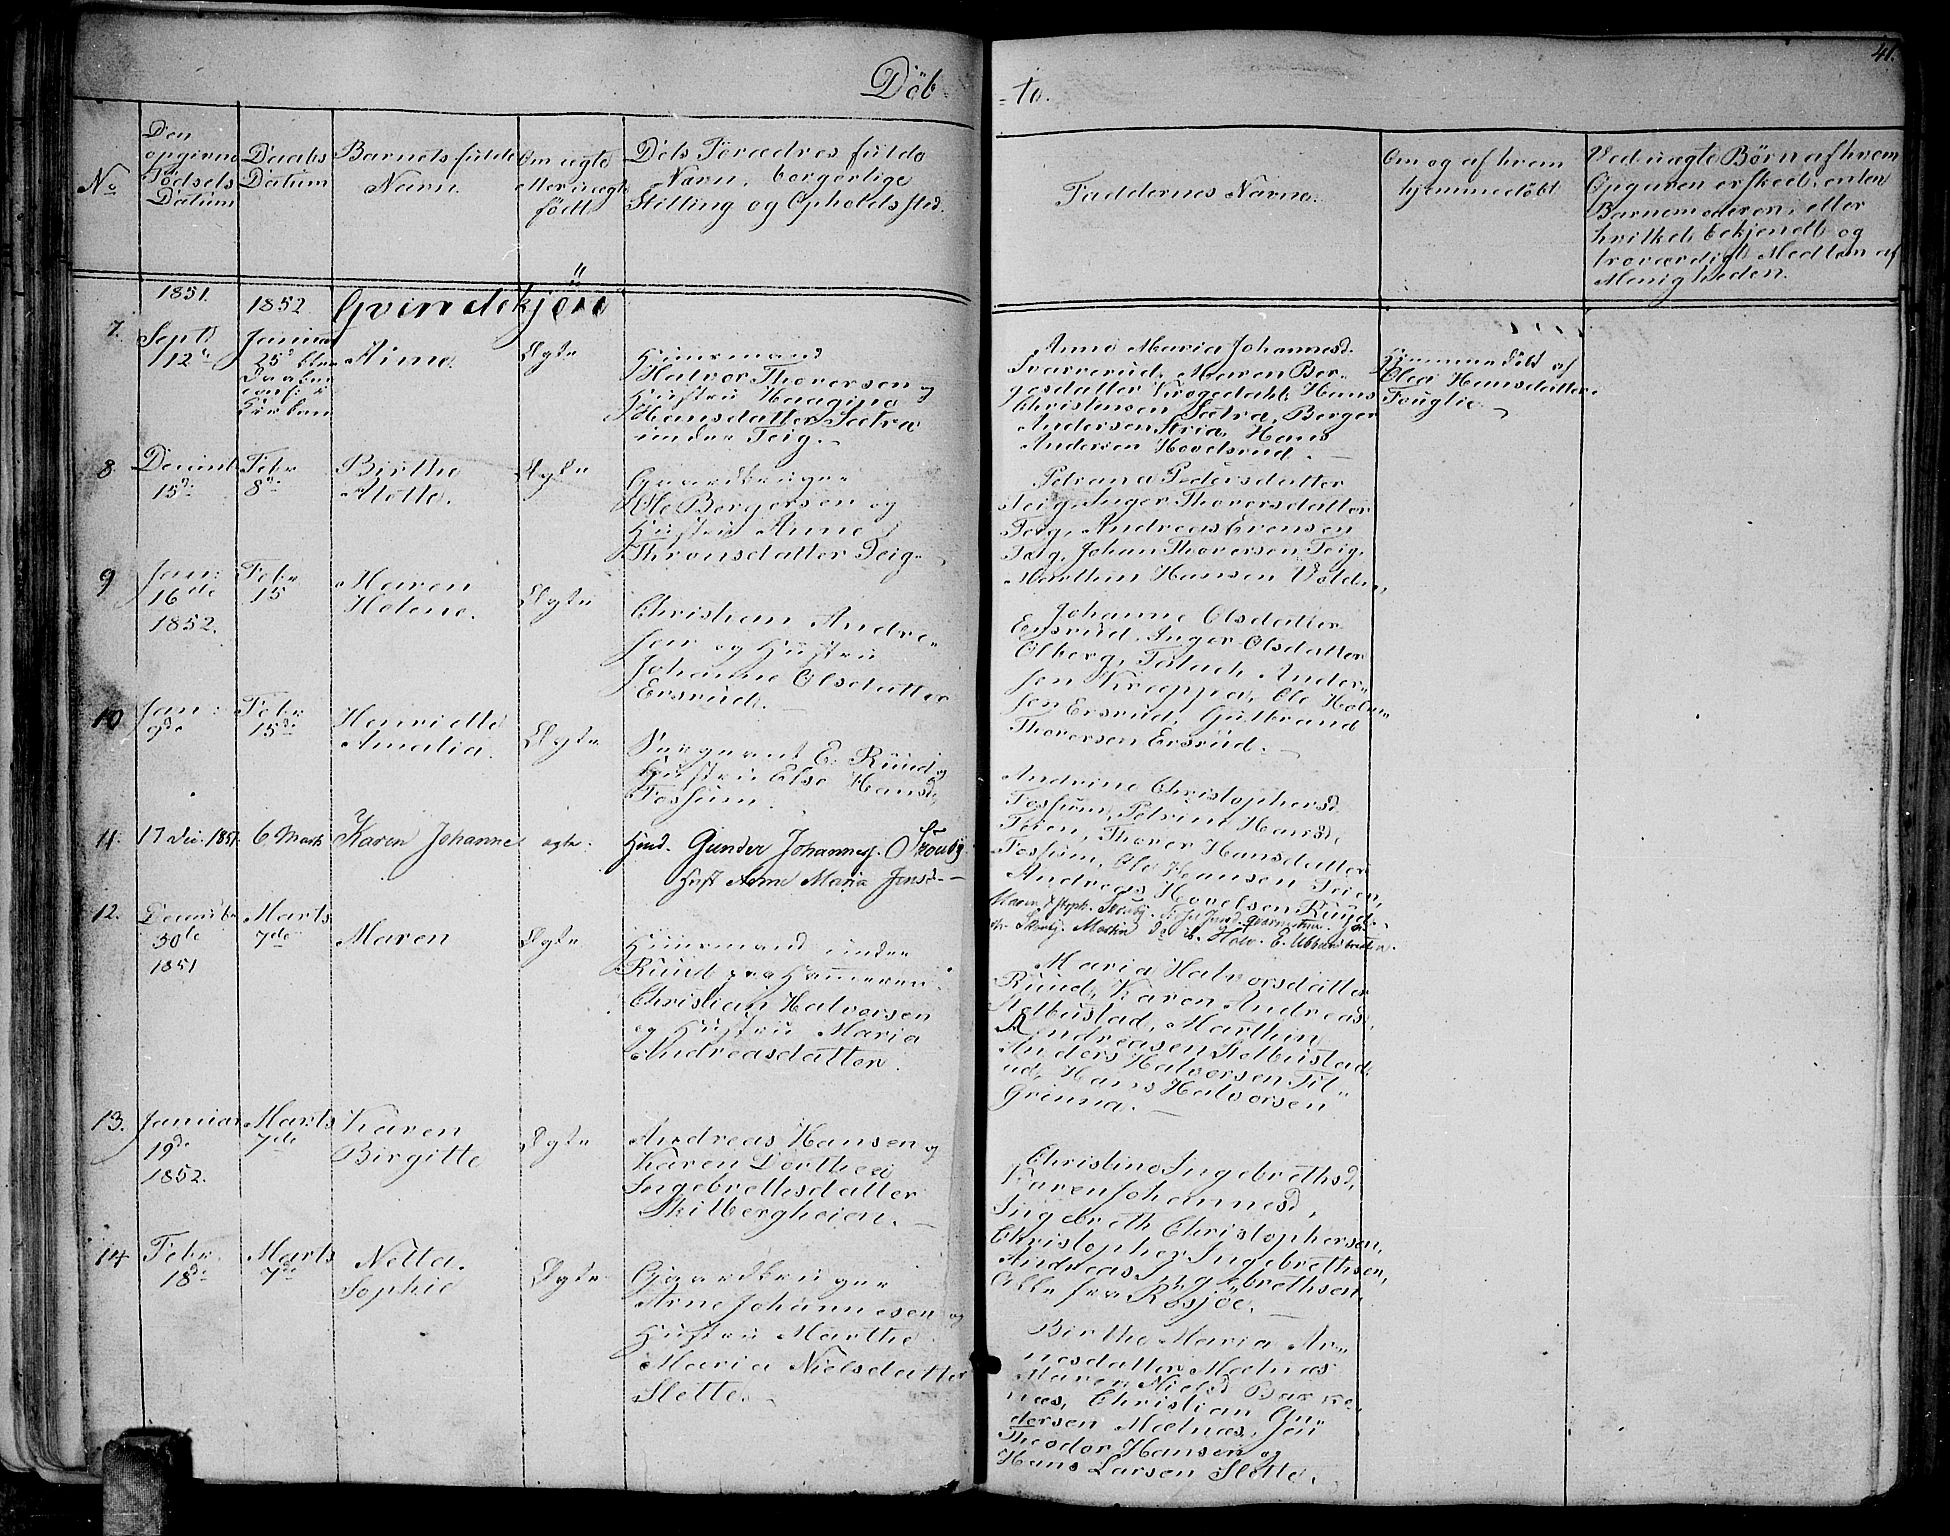 41.
Döb-
-te.
No
Den
opgivne
Födsels
Datum
Daabs
Datum
Barnets fulde
Navn.
Om ægte
eller uægte
födt
Dets Forædres fulde
Navn, borgerlige
Stilling og Opholdssted.
Faddernes Navne.
Om og af hvem
hjemmedöbt
Ved uægte Börn af hvem
Opgaven er skeed, enten
Barnemoderen, eller
hvilket bekjendt og
troværdigt Medlem af
Menigheden.
1851.
1852.
Qvindekjön
7.
Septb
12te
Januar
25de
Anne.
Ægte
Huusmand
Halvor Thoresen og
Hustru Haagine
Hansdatter Sætra
under Teig.
Anne Maria Johannesd.
Sværrerud, Maren Ber-
gesdatter Krogedahl, Hans
Christensen Sætra, Berger
Andersen Stria, Hans
Andersen Hovelsrud.
Hjemmedöbt af
Olea Hansdatter
Fouglie.
8.
Decemb
15de
Febr
8de
Birthe
Mette.
Ægte
Gaardbruger
Ole Bergersen og
Hustru Anne
Thronsdatter Teig.
Petrana Pedersdatter
Teig, Inger Thoresdatter
Teig, Andreas Evensen
Teig, Johan Thoresen Teig,
Marthin Hansen Volden,
9
Jan:
16de
1852.
Febr
15
Maren
Helene.
Ægte
Christian Andre-
sen og Hustru
Johanne Olsdatter
Ersrud.
Johanne Olsdatter
Ersrud, Inger Olsdatter
Olberg, Anders-
sen Krappa, Ole Hals-
sen Ersrud, Gulbrand
Thoresen Ersrud.
10
Jan:
9de
Febr
15de
Henriette
Amalia.
Ægte
Sergeant E. Ruud og
Hustru Else Hansd.
Fossum.
Andrine Christophersd.
Fossum, Petrine Hansd,
Teien, Thore Hansdatter
Fossum, Ole Hansen Teien,
Andreas Hovelsen Ruud.
11.
17 Dec. 1851.
6 Marts
Karen Johanne
ægte.
Hmd. Gunder Johanness. Skouby
Hust Anne Maria Jensd.
Maren Skouby.
Skouby. Martin
12.
Decembr
30te
1851
Marts
7de
Maren
Ægte
Huusmand under
Ruud paa Hammeren
Christian Halvorsen
og Hustru Maria
Andreasdatter.
Maria Halvorsdatter
Ruud, Karen Andreasd.
Stelbustad, Marthin
Andreasen Stelbustad,
Anders Halvorsen Til-
ud, Hans Halvorsen
Grinna.
13.
Januar
19de
1852.
Marts
7de
Karen
Birgitte
Ægte
Andreas Hansen og
Karen Dorthea
Ingebrettesdatter
Skilbergheien.
Christine Ingebrethsd,
Karen Johannesd,
Ingebreth Christophersen,
Christopher Ingebrethsen,
Andreas Ingebrethsen
Alle fra Rösjöe.
14
Febr.
18de
Marts
7de
Netta
Sophie
Ægte
Gaardbruger
Arne Johannesen og
Hustru Marthe
Maria Nielsdatter
Slette.
Birthe Maria Ar-
nesdatter Mælnæs
Maren Nielsd Barke-
næs, Christian Gu-
dersen Mælnæs,
Theodor Hansen og
Hans Larsen Slette.